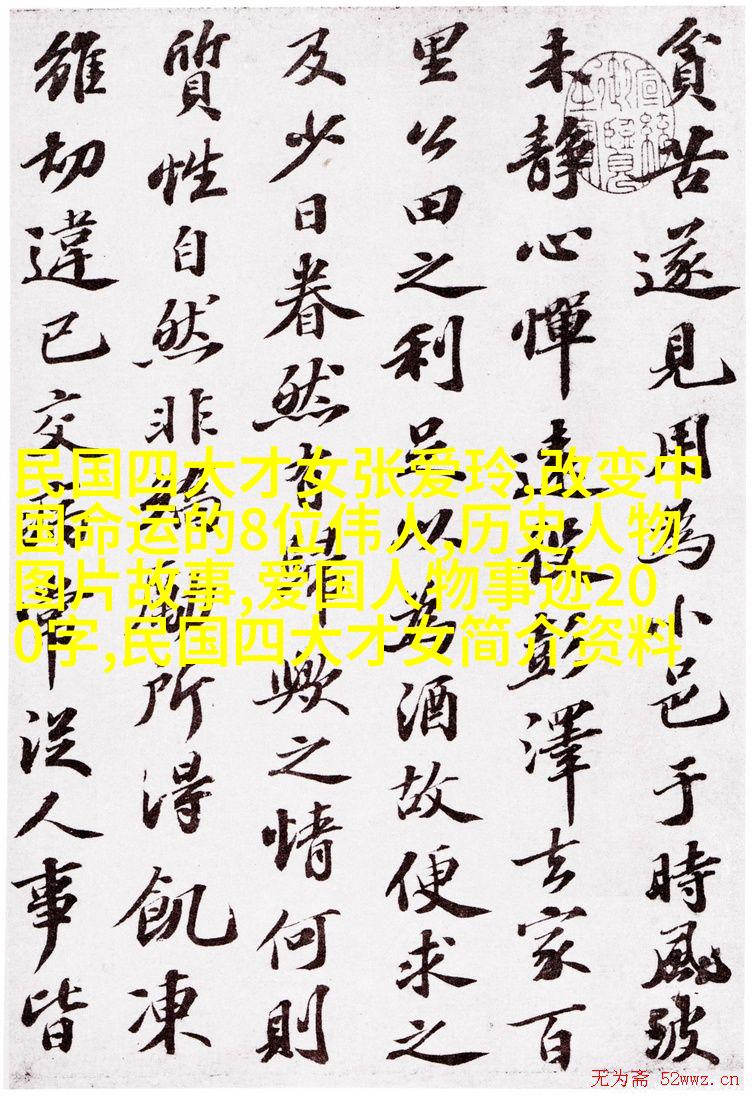 貧苦遂見用為小邑于時風波
未静心憚遠役彭澤去家百
里公田之利足以為酒故便求之
及少日眷然有歸歟之情何則
質性自然非矯勵所得飢凍
雖切違己交病常從人事皆
民国四大才女张爱玲,改变中
国命运的8位伟人,历史人物
图片故事,爱国人物事迹20
0字,民国四大才女简介资料
无为斋 52wwz.cn